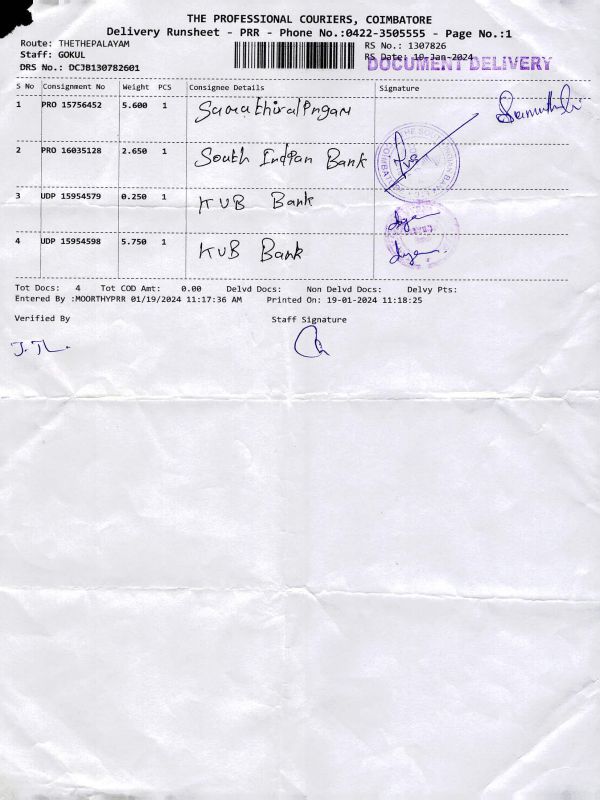 THE PROFESSIONAL COURIERS, COIMBATORE
Delivery Runsheet - PRR - Phone No.:0422-3505555 - Page No.:1
Route: THETHEPALAYAM
RS No.: 1307826
Staff: GOKUL
RS Date: 19-Jan-2024
DRS No.: DCJB130782601
DOCUMENT DELIVERY
S No Consignment No Weight PCS Consignee Details Signature
1 PRO 15756452 5.600 1
2 PRO 16035128 2.650 1 South Indian Bank
3 UDP 15954579 0.250 1 KVB Bank
4 UDP 15954598 5.750 1 KVB Bank
Tot Docs: 4 Tot COD Amt: 0.00 Delvd Docs: Non Delvd Docs: Delvy Pts:
Entered By :MOORTHYPRR 01/19/2024 11:17:36 AM Printed On: 19-01-2024 11:18:25
Verified By Staff Signature